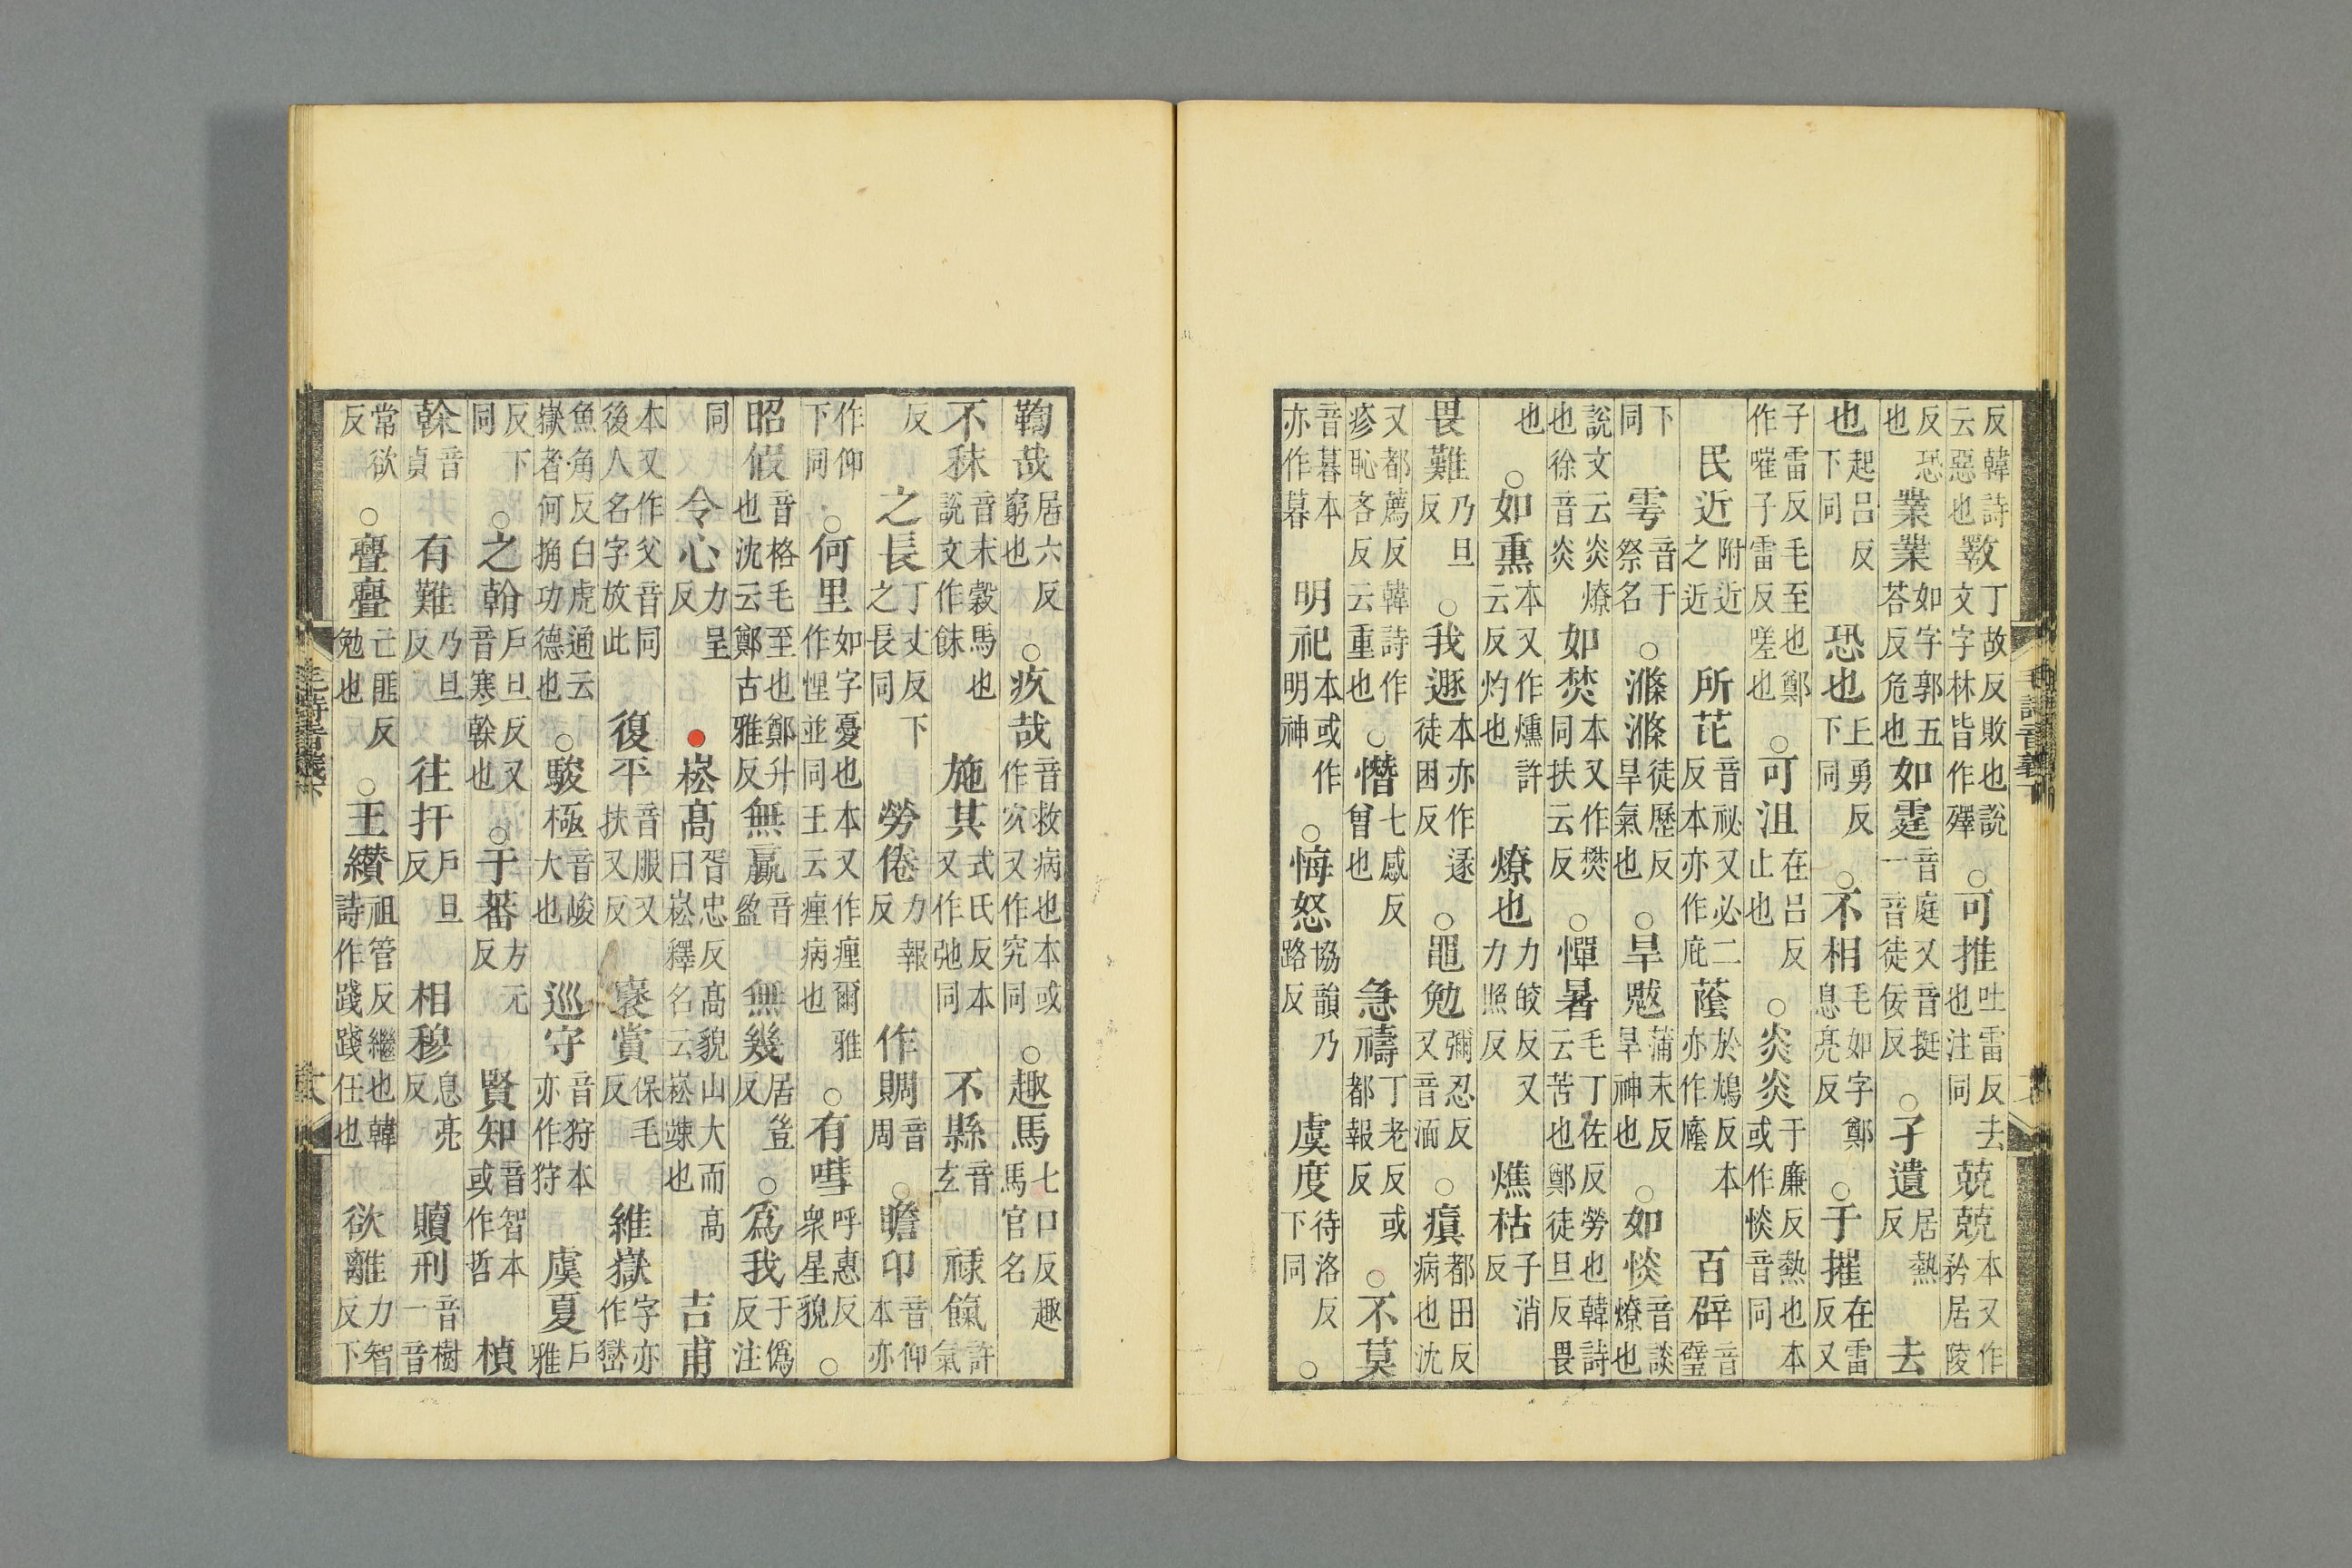 反韓詩云惡也斁丁故反敗也說文字林皆作殬○可推吐雷反去也注同兢兢本又作矜居陵
反恐也業業如字郭五荅反危也如霆音庭又音挺一音徒佞反○孑遺居熱反去
也起呂反下同恐也丘勇反下同○不相毛如字鄭息亮反○于摧在雷反又
子雷反毛至也鄭作嗺子雷反嗟也○可沮在呂反止也○炎炎于廉反熱也本或作惔音同
民近附近之近所芘音祕又必二反本亦作庇蔭於鴆反本亦作廕百辟音璧
下同雩音于祭名○滌滌徒歷反旱氣也○旱魃蒲末反旱神也○如惔音談燎也
說文云炎燎也徐音炎如焚本又作樊同扶云反○憚暑毛丁佐反勞也韓詩云苦也鄭徒旦反畏
也○如熏本又作燻許云反灼也燎也力皎反又力照反燋枯子消反
畏難乃旦反○我遯本亦作遂徒困反○黽勉彌忍反又音湎○瘨都田反病也沈
又都薦反韓詩作疹恥吝反云重也○憯七感反曾也急禱丁老反或都報反○不莫
音暮本亦作暮明祀本或作明神○悔怒協韻乃路反虞度待洛反下同○
毛詩音義下
鞫哉居六反窮也○疚哉音救病也本或作宄又作究同○趣馬七口反趣馬官名
不秣音末穀馬也說文作䬴施其式氏反本又作弛同不縣音玄祿餼許氣
反之長丁丈反下之長同勞倦力報反作賙音周○瞻卬音仰本亦
作仰下同○何里如字憂也本又作㾖爾雅作悝並同王云㾖病也○有嘒呼惠反衆星貌○
昭假音格毛至也鄭升也沈云鄭古雅反無贏音盈無幾居豈反○爲我于僞反注
同令心力呈反●崧高胥忠反高貌山大而高曰崧釋名云崧竦也吉甫
本又作父音同後人名字放此復平音服又扶又反襃賞保毛反維嶽字亦作
魚角反白虎通云嶽者何捔功德也○駿極音峻大也巡守音狩本亦作狩虞夏戶雅
反下同○之翰戶旦反又音寒榦也○于蕃方元反賢知音智本或作哲楨
榦音貞有難乃旦反往扞戶旦反相穆息亮反贖刑音樹一音
常欲反○亹亹亡匪反勉也○王纘祖管反繼也韓詩作踐踐任也欲離力智反下
毛詩音義下